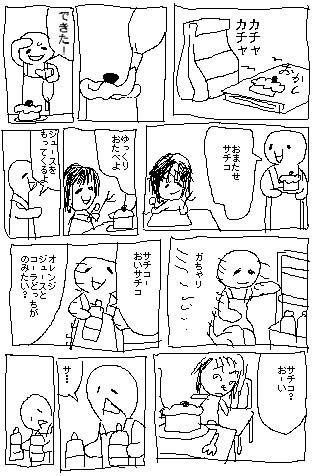 カチャ
カチャ
できたー
おまたせ
サチコ
ゆっくり
おたべよ
ジュースを
もってくるよ
ガちゃり
サチコー
おいサチコ
オレンジ
ジュースと
コーラどっちが
のみたい?
サチコ?
おーい
サ…